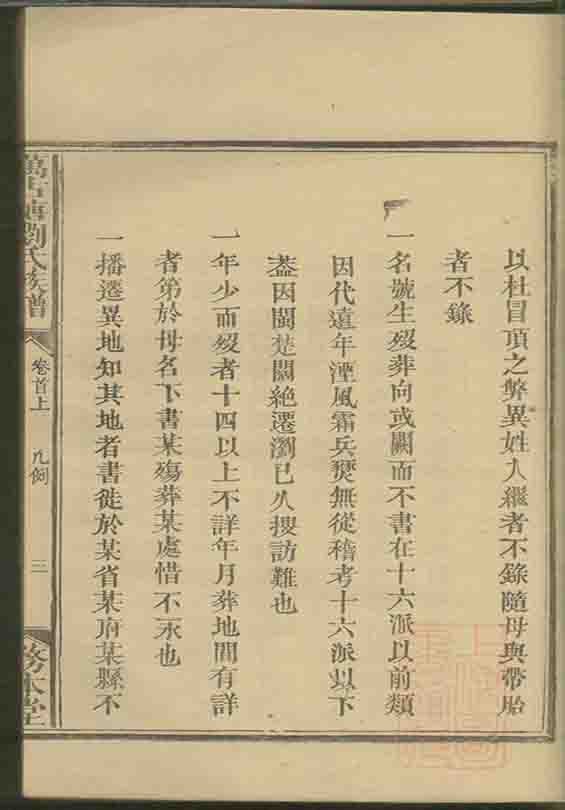 以杜冒頂之弊異姓入繼者不錄隨母與帶胎
者不錄
一名號生歿葬向或闕而不書在十六派以前類
因代遠年湮風霜兵燹無從稽考十六派以下
葢因閩楚闊絶遷瀏已久搜訪難也
一年少而歿者十四以上不詳年月葬地間有詳
者第於母名下書某殤葬某處惜不永也
一播遷異地知其地者書徙於某省某府某縣不
劉氏族譜
卷首上 凡例 三
務本堂